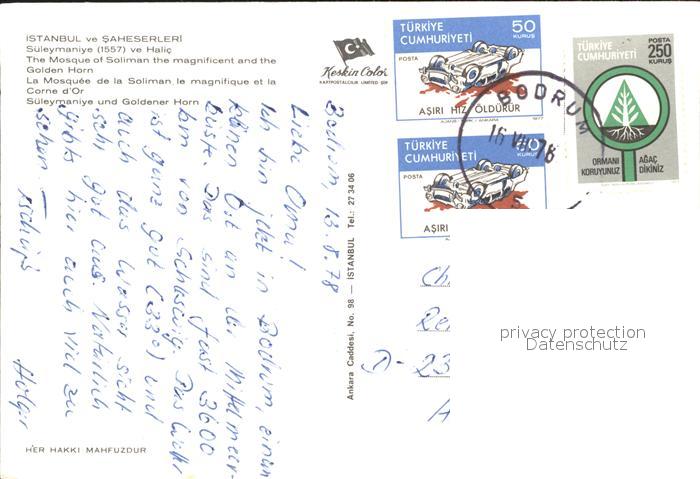 İSTANBUL ve ŞAHESERLERİ
Süleymaniye (1557) ve Haliç
The Mosque of Soliman the magnificent and the
Golden Horn
La Mosquée de la Soliman le magnifique et la
Corne d'Or
Süleymaniye und Goldener Horn
Keskin Color
KARTPOSTALCILIK LIMITED ŞTİ
TÜRKİYE
CUMHURİYETİ
50
KURUŞ
POSTA
AŞIRI HIZ ÖLDÜRÜR
1977
TÜRKİYE
CUMHURİYETİ
50
KURUŞ
POSTA
AŞIRI
TÜRKİYE
CUMHURİYETİ
POSTA
250
KURUŞ
ORMANI
KORUYUNUZ
AĞAÇ
DİKİNİZ
BODRUM
16 VIII 78
Bodrum 13.8.78
Liebe Omi!
Ich bin jetzt in Bodrum, einem
kleinen Ort an der Mittelmeer-
küste. Das sind fast 3600
km von Schleswig. Das Wetter
ist ganz gut (33°) und
auch das Wasser sieht
sehr gut aus. Natürlich
gibts hier auch viel zu
sehen. Tschüß
Holger
Ankara Caddesi, No. 98 — İSTANBUL Tel.: 27 34 06
D- 23
privacy protection
Datenschutz
HER HAKKI MAHFUZDUR